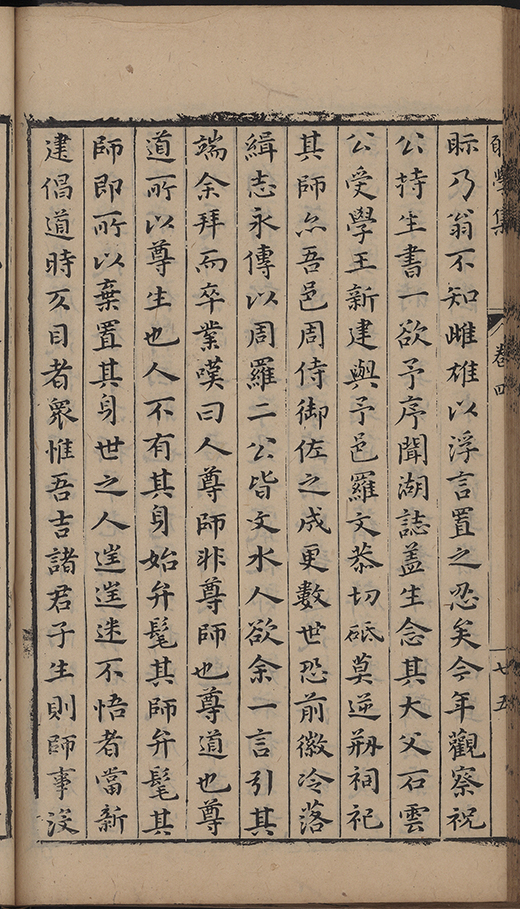 學集
卷四
七五
眎乃翁不知雌雄以浮言置之忍矣今年觀察祝
公持生書一欲予序聞湖誌葢生念其大父石雲
公受學王新建與予邑羅文恭切砥莫逆刱祠祀
其師亦吾邑周侍御佐之成更數世恐前徽冷落
緝志永傳以周羅二公皆文水人欲余一言引其
端余拜而卒業嘆曰人尊師非尊師也尊道也尊
道所以尊生也人不有其身始弁髦其師弁髦其
師即所以棄置其身世之人迷不悟者當新
建倡道時反目者衆惟吾吉諸君子生則師事沒